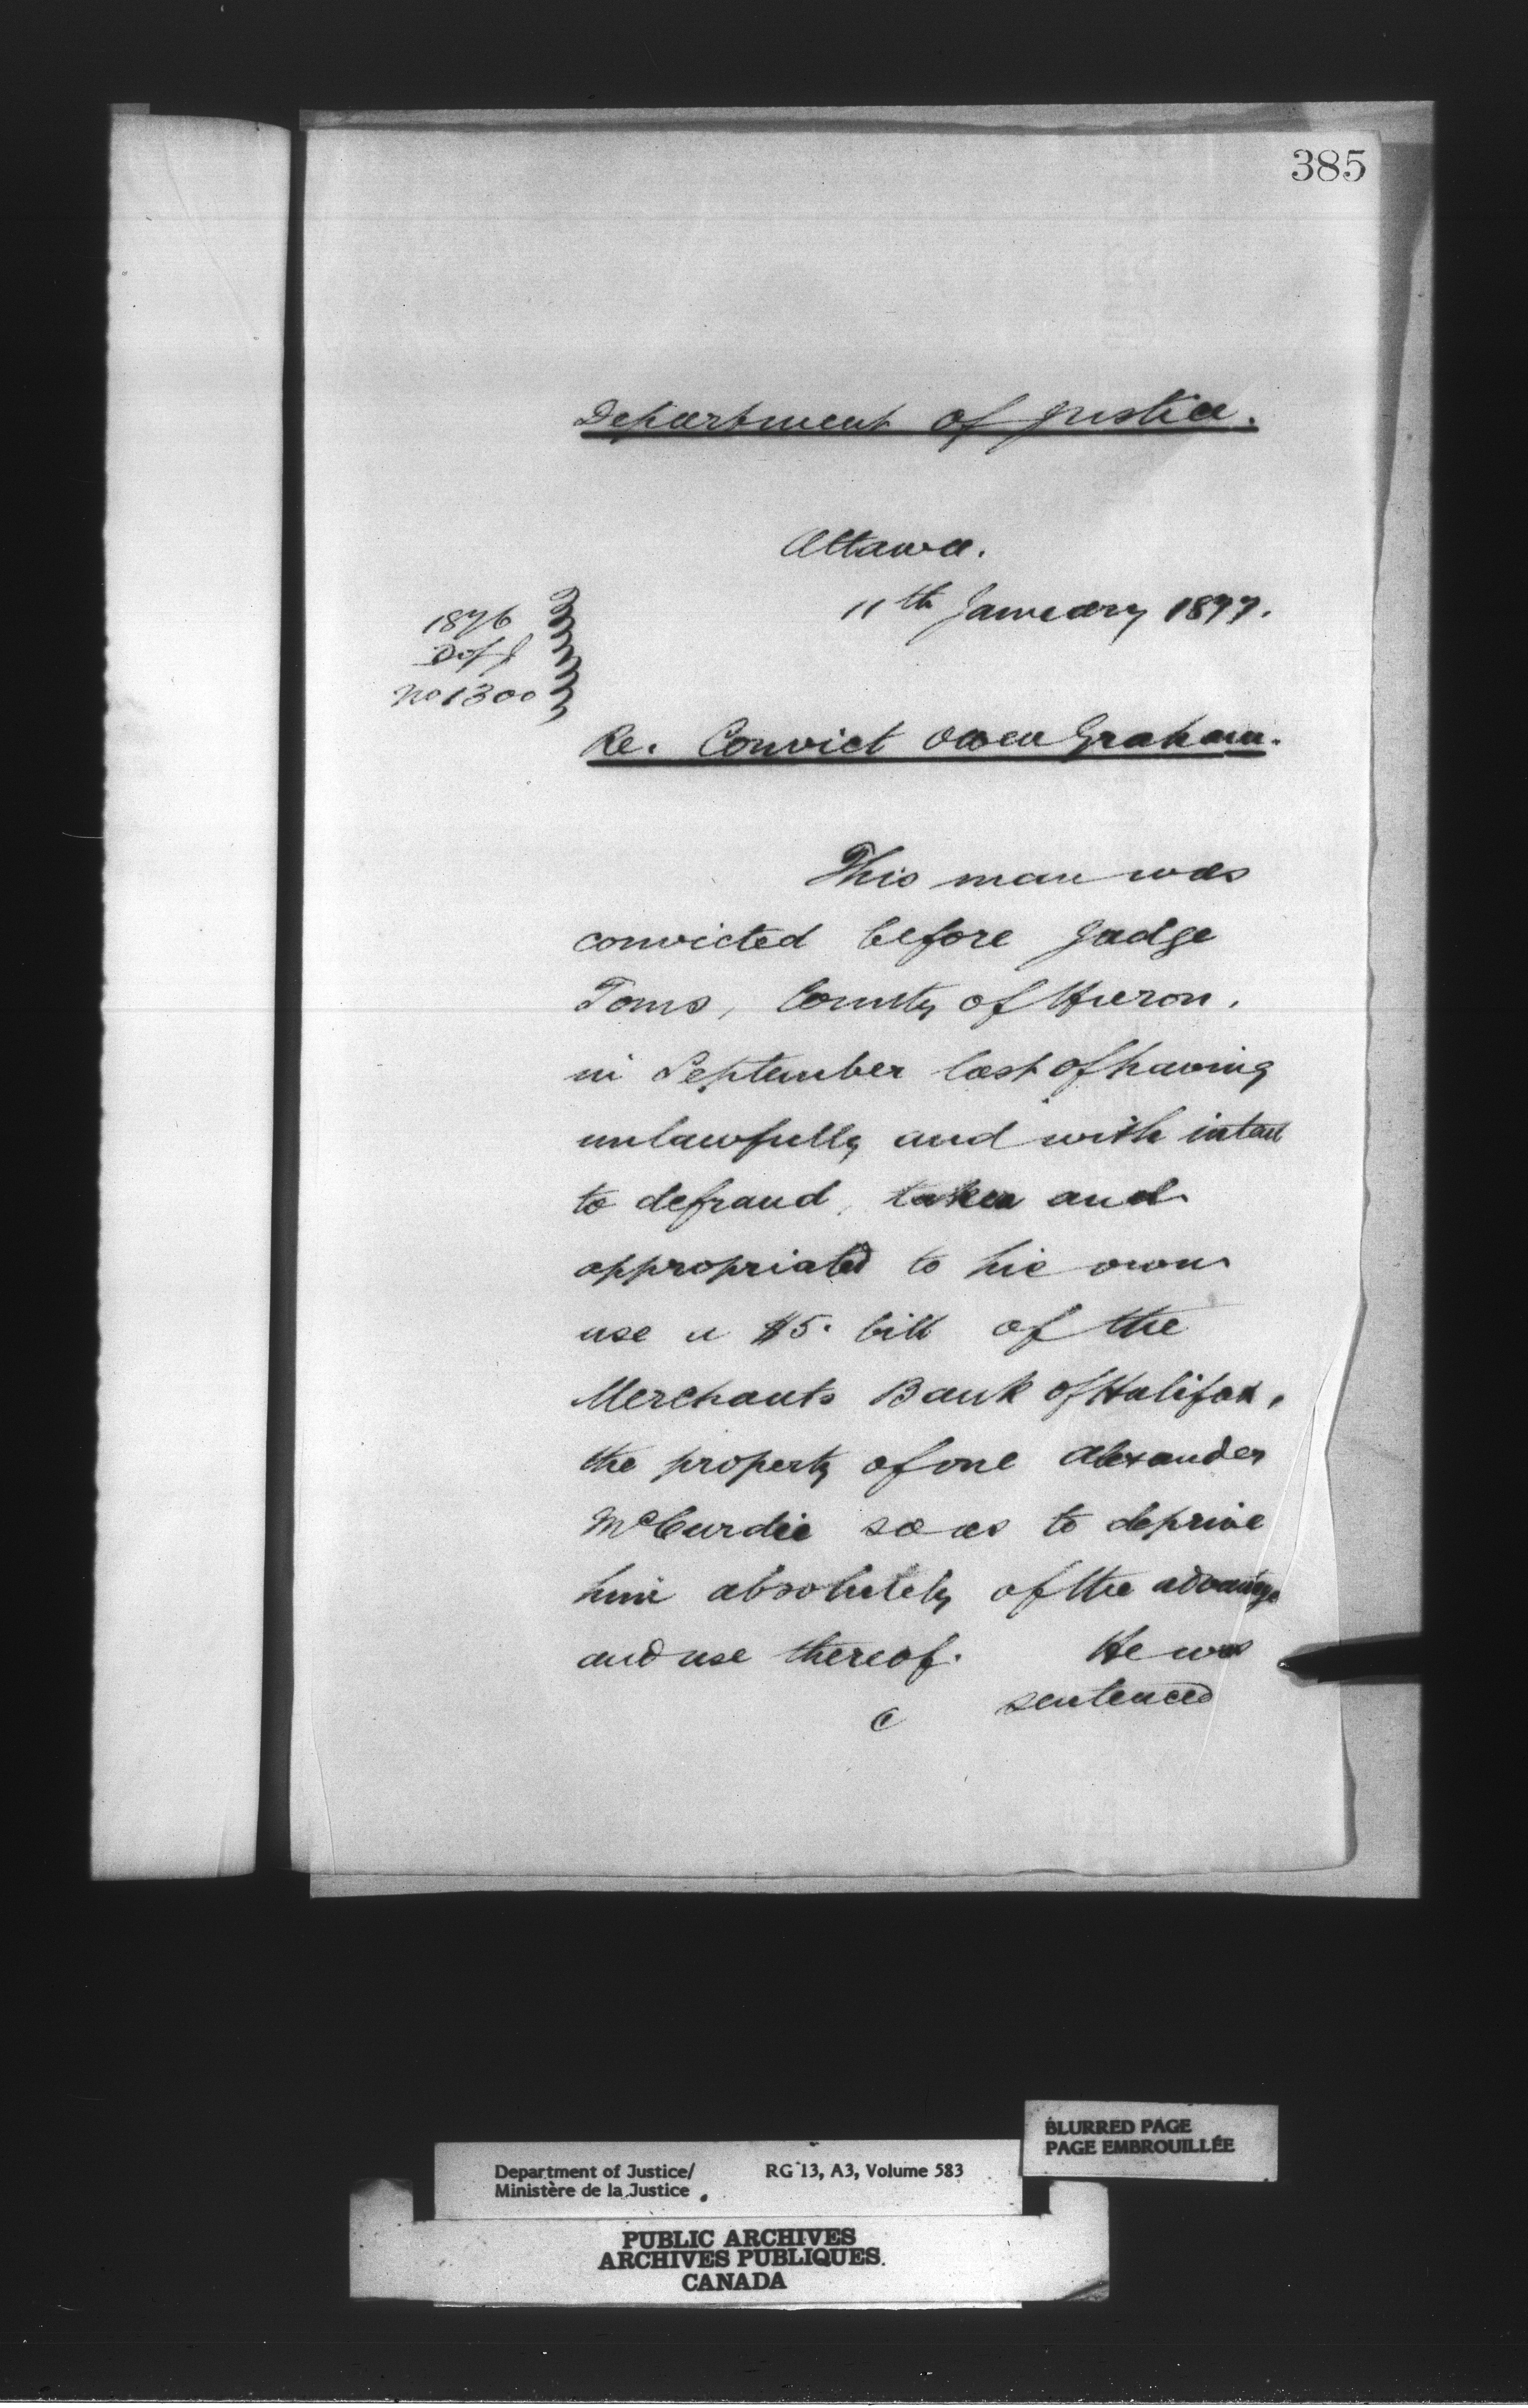 385
Department of Justice.
Ottawa.
11th January 1877.
1876
D of J
No 1300
Re. Convict Owen Graham.
This man was
convicted before Judge
Toms, County of Huron,
in September last of having
unlawfully and with intent
to defraud, taken and
appropriated to his own
use a $5. bill of the
Merchants Bank of Halifax,
the property of one Alexander
McCurdie so as to deprive
him absolutely of the advantage
and use thereof. He was
sentenced
BLURRED PAGE
PAGE EMBROUILLÉE
Department of Justice/ RG 13, A3, Volume 583
Ministère de la Justice
PUBLIC ARCHIVES
ARCHIVES PUBLIQUES
CANADA